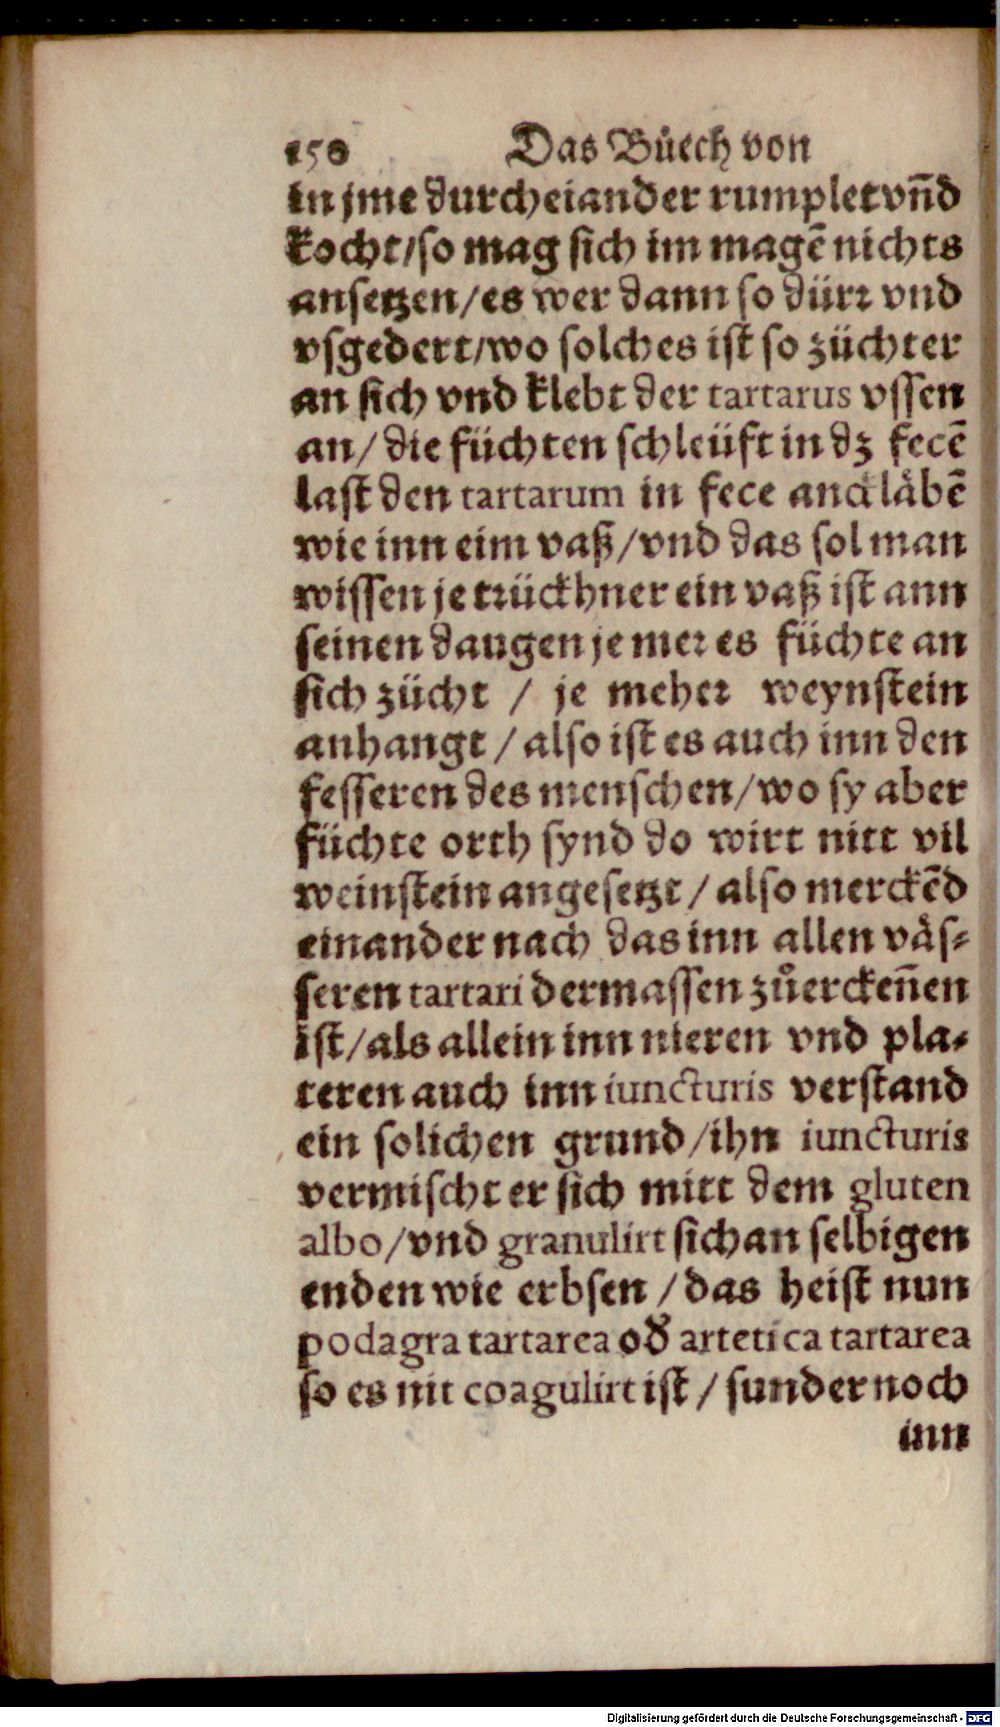 158 Das Bůech von
in jme durcheiander rumplet vn̄d
kocht/so mag sich im magē nichts
ansetzen/es wer dann so dürr vnd
vsgedert/wo solches ist so züchter
an sich vnd klebt der tartarus vssen
an/die füchten schleüft in dz fecē
last den tartarum in fece anckläbē
wie inn eim vaß/vnd das sol man
wissen je trückhner ein vaß ist ann
seinen daugen je mer es füchte an
sich zücht / je meher weynstein
anhangt / also ist es auch inn den
fesseren des menschen/wo sy aber
füchte orth synd do wirt nitt vil
weinstein angesetzt / also merckēd
einander nach das inn allen väs-
seren tartari dermassen zůercken̄en
ist/als allein inn nieren vnd pla-
teren auch inn iuncturis verstand
ein solichen grund/ihn iuncturis
vermischt er sich mitt dem gluten
albo/vnd granulirt sich an selbigen
enden wie erbsen /das heist nun
podagra tartarea od' artetica tartarea
so es nit coagulirt ist / sunder noch
inn
Digitalisierung gefördert durch die Deutsche Forschungsgemeinschaft - DFG